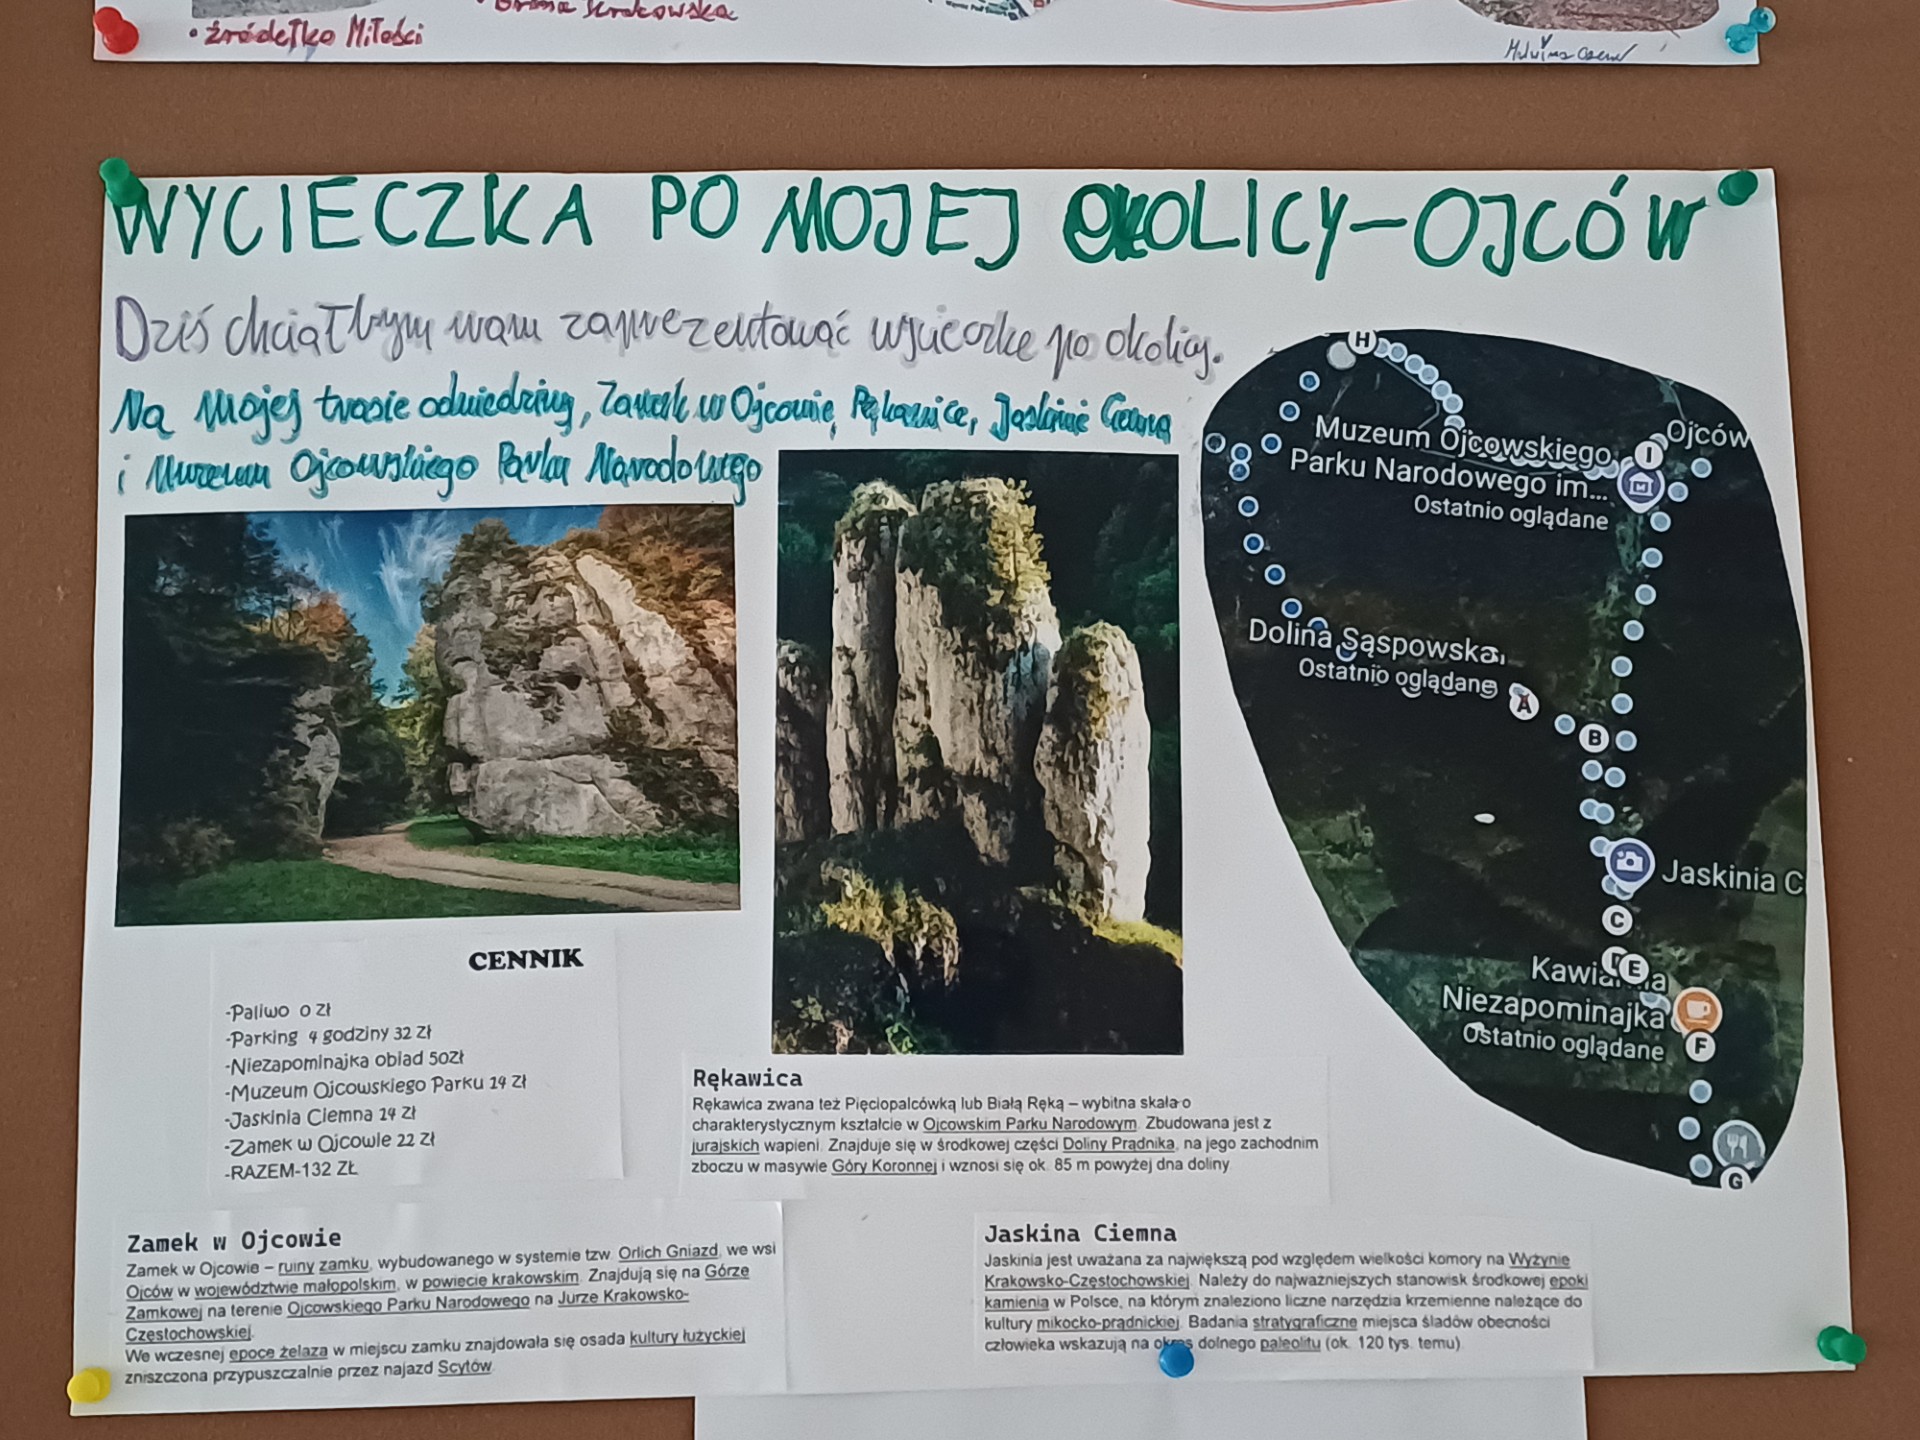 • źródełko Miłości
WYCIECZKA PO MOJEJ OKOLICY-OJCÓW
Dziś chciałbym wam zaprezentować wycieczkę po okolicy.
Na Mojej trasie odwiedzimy, Zamek w Ojcowie, Rękawice, Jaskinie Ciemna
i Muzeum Ojcowskiego Parku Narodowego
H
Ojców
Muzeum Ojcowskiego
I
Parku Narodowego im...
Ostatnio oglądane
Dolina Sąspowska
Ostatnio oglądane
A
B
Jaskinia C
C
E
Niezapominajka
Ostatnio oglądane
F
G
CENNIK
-Paliwo 0 zł
-Parking 4 godziny 32 zł
-Niezapominajka obiad 50zł
-Muzeum Ojcowskiego Parku 14 zł
-Jaskinia Ciemna 14 zł
-Zamek w Ojcowie 22 zł
-RAZEM-132 ZŁ
Rękawica
Rękawica zwana też Pięciopalcówką lub Białą Ręką – wybitna skała o
charakterystycznym kształcie w Ojcowskim Parku Narodowym. Zbudowana jest z
jurajskich wapieni. Znajduje się w środkowej części Doliny Prądnika, na jego zachodnim
zboczu w masywie Góry Koronnej i wznosi się ok. 85 m powyżej dna doliny
Zamek w Ojcowie
Zamek w Ojcowie – ruiny zamku, wybudowanego w systemie tzw. Orlich Gniazd, we wsi
Ojców w województwie małopolskim, w powiecie krakowskim. Znajdują się na Górze
Zamkowej na terenie Ojcowskiego Parku Narodowego na Jurze Krakowsko-
Częstochowskiej.
We wczesnej epoce żelaza w miejscu zamku znajdowała się osada kultury łużyckiej
zniszczona przypuszczalnie przez najazd Scytów.
Jaskina Ciemna
Jaskinia jest uważana za największą pod względem wielkości komory na Wyżynie
Krakowsko-Częstochowskiej. Należy do najważniejszych stanowisk środkowej epoki
kamienia w Polsce, na którym znaleziono liczne narzędzia krzemienne należące do
kultury mikocko-prądnickiej. Badania stratygraficzne miejsca śladów obecności
człowieka wskazują na okres dolnego paleolitu (ok. 120 tys. temu)